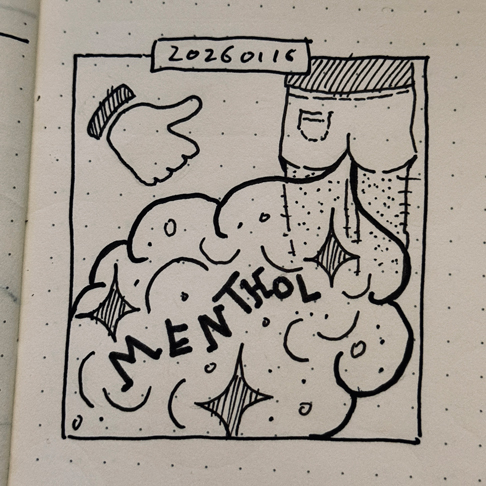 20260116
MENTHOL